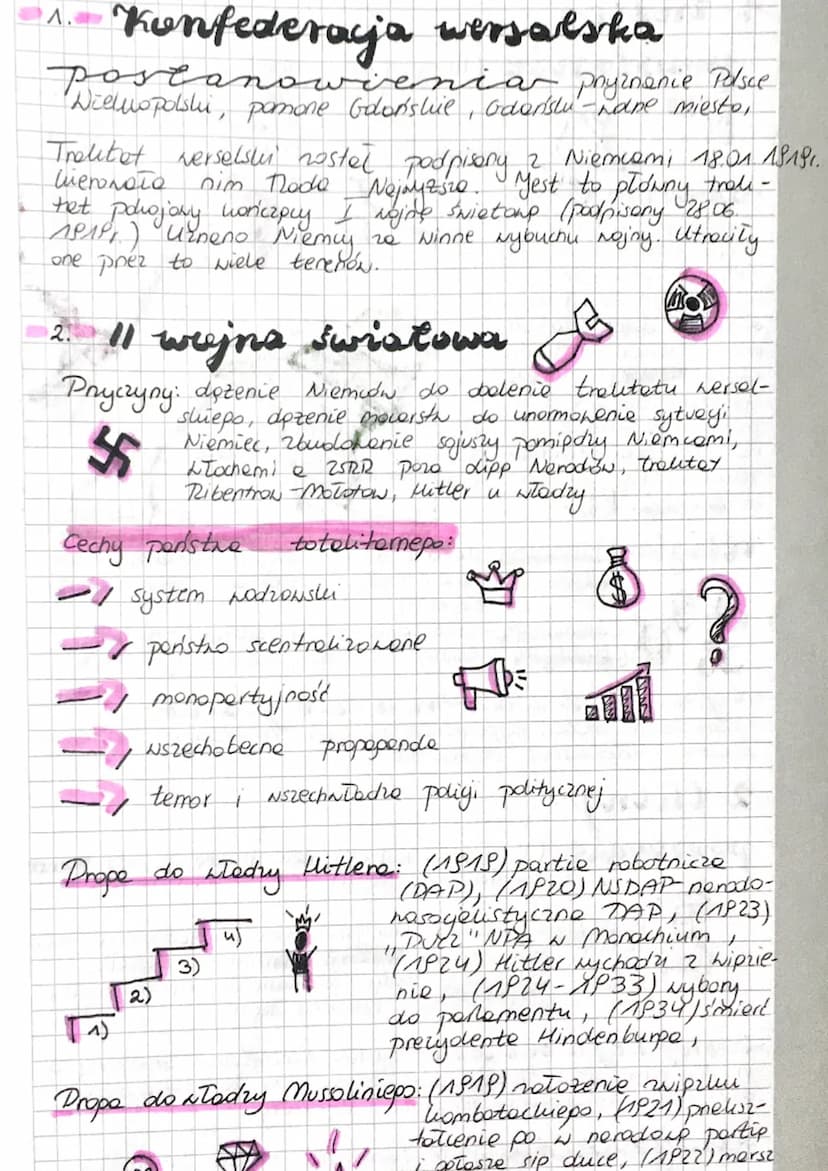 1. Konfederacja wersalska
postanowienia przyznanie Polsce
Wielkopolski, pomorze Gdańskie, Gdańsk-wolne miasto,
Traktat wersalski został podpisany z Niemcami 18.01.1919r.
kierowała nim Rada Najwyższa. Jest to główny trak-
tat pokojowy kończący I wojnę światową (podpisany 28.06.
1919r.) Uznano Niemcy za winne wybuchu wojny. Utraciły
one przez to wiele terenów.
2. II wojna światowa
Przyczyny: dążenie Niemców do obalenia traktatu wersal-
skiego, dążenie mocarstw do unormowania sytuacji
Niemiec, zbudowanie sojuszy pomiędzy Niemcami,
Włochami a ZSRR poza Ligą Narodów, traktat
Ribentrow-Mołotow, Hitler u władzy
Cechy państwa totalitarnego:
system wodzowski
państwo scentralizowane
monopartyjność
wszechobecna propaganda
terror i wszechwładza policji politycznej
Droga do władzy Hitlera: (1919) partia robotnicza
(DAP), (1920) NSDAP-narodo-
wasocjalistyczna DAP, (1923)
"Pucz" w Monachium,
(1924) Hitler wychodzi z więzie-
nia, (1924-1933) wybory
do parlamentu, (1934) śmierć
prezydenta Hindenburga,
1)
2)
3)
4)
Droga do władzy Mussoliniego: (1919) założenie związku
kombatackiego, (1921) przeksz-
tałcenie go w narodową partię
i ogłasza się duce, (1922) marsz